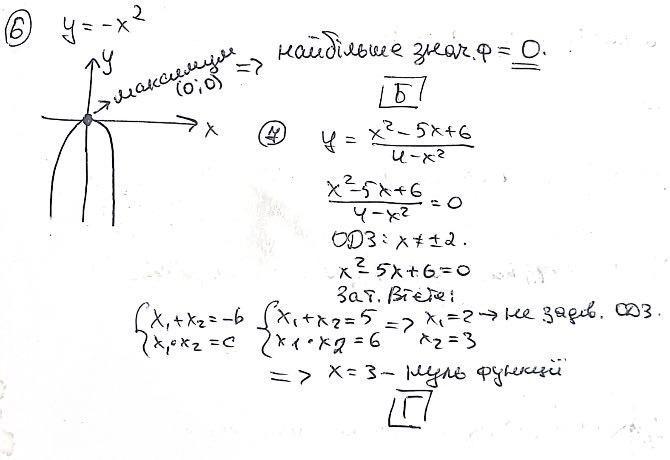 6 y = -x²
y
максимум
(0;0)
=> найбільше знач. ф = 0.
Б
x
7 y = (x² - 5x + 6)/(4 - x²)
(x² - 5x + 6)/(4 - x²) = 0
ОДЗ: x ≠ ±2.
x² - 5x + 6 = 0
За т. Вієта:
{x₁ + x₂ = -b {x₁ + x₂ = 5 => x₁ = 2 → не задов. ОДЗ.
{x₁ • x₂ = c {x1 • x2 = 6 x₂ = 3
=> x = 3 – нуль функції
Г